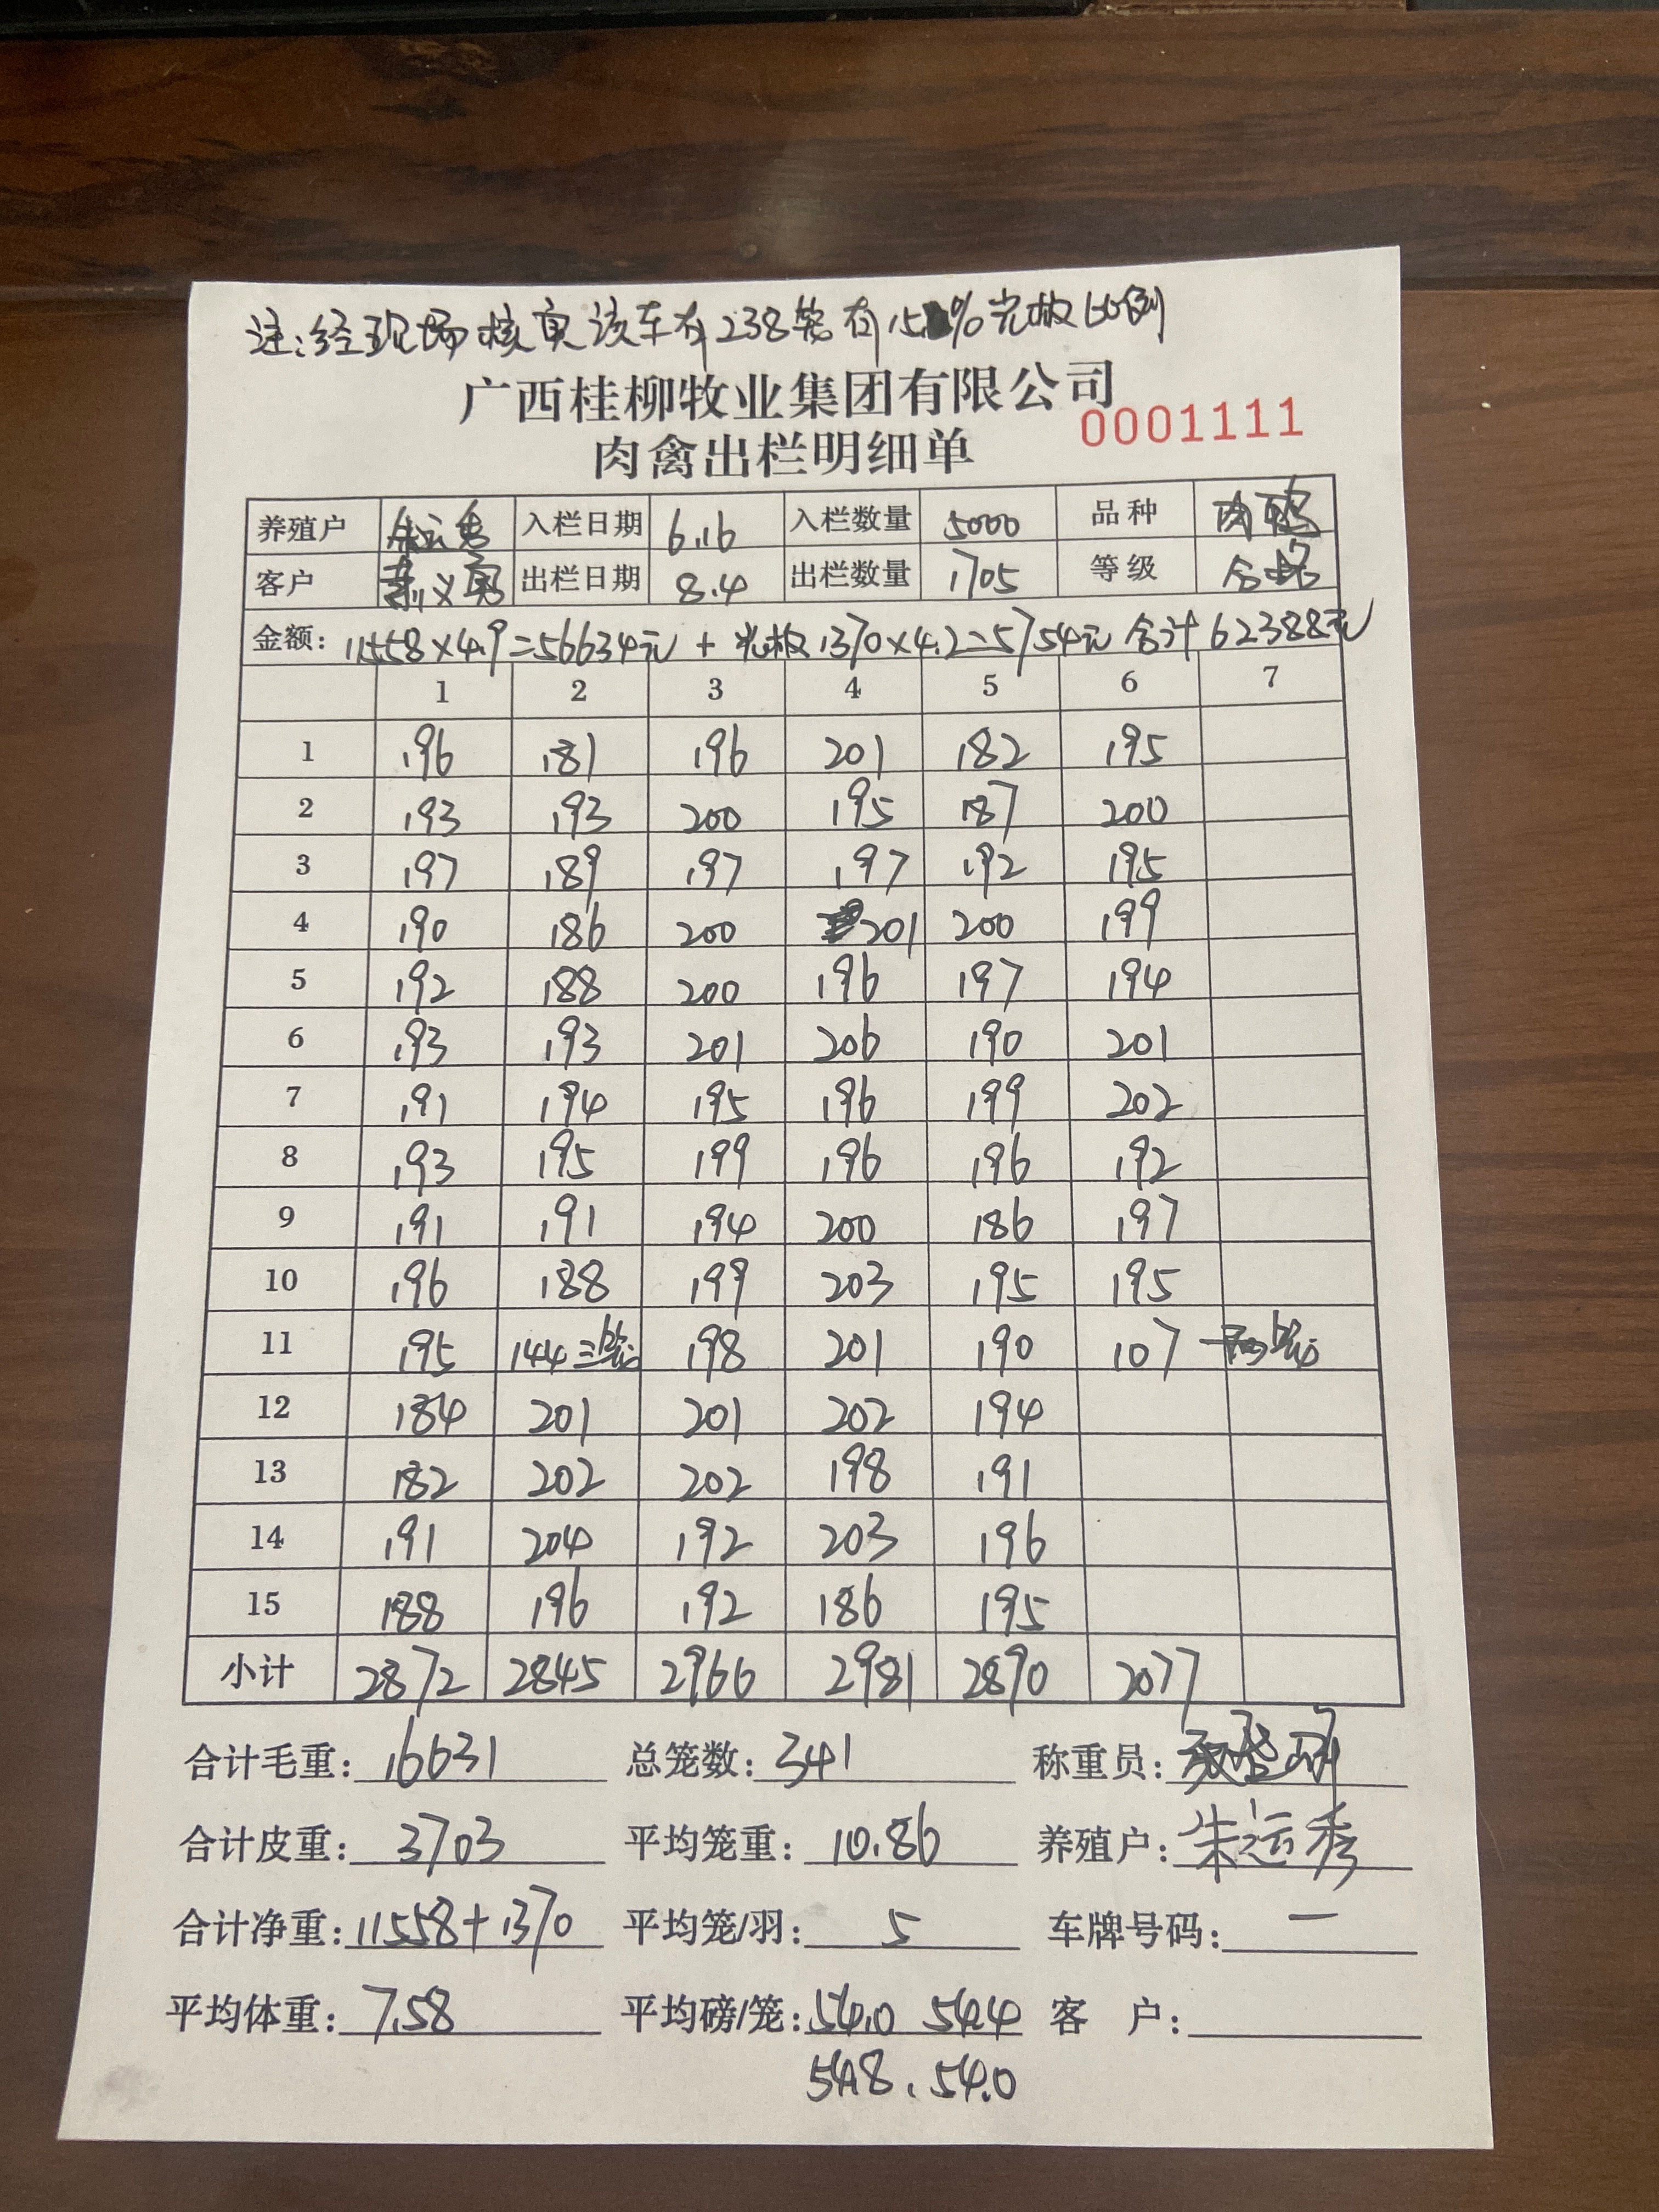 注:经现场核实该车有238笼有15%光板比例
广西桂柳牧业集团有限公司
0001111
肉禽出栏明细单
养殖户 朱运秀 入栏日期 6.16 入栏数量 5000 品种 肉鸭
客户 义勇 出栏日期 8.4 出栏数量 1705 等级 合格
金额: 11558×4.9=56634元 + 光板1370×4.2=5754元 合计62388元
1 2 3 4 5 6 7
1 196 181 196 201 182 195
2 193 193 200 195 187 200
3 197 189 197 197 192 195
4 190 186 200 201 200 199
5 192 188 200 196 197 194
6 193 193 201 206 190 201
7 191 194 195 196 199 202
8 193 195 199 196 196 192
9 191 191 194 200 186 197
10 196 188 199 203 195 195
11 195 144三笼 198 201 190 107
12 184 201 201 202 194
13 182 202 202 198 191
14 191 204 192 203 196
15 188 196 192 186 195
小计 2872 2845 2966 2981 2890 2077
合计毛重: 16631 总笼数: 341 称重员:
合计皮重: 3703 平均笼重: 10.86 养殖户: 朱运秀
合计净重: 11558+1370 平均笼/羽: 5 车牌号码: 一
平均体重: 7.58 平均磅/笼: 54.0 54.4 客 户:
54.8. 54.0